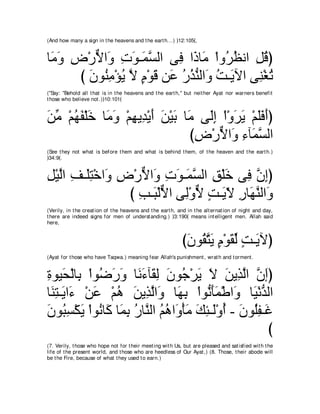 (And how many a sign in the heavens and the earth...) )12:105(,
﴿قُلِ انظُرُواْ مَاذَا فِى السَّمَـوَتِ وَالاٌّرْضِ وَمَا
تُغْنِى الآيَـتُ وَالنُّذُرُ عَن قَوْمٍ لاَّ يُؤْمِنُونَ ﴾
("Say: "Behold all that is in the heavens and the earth,'' but neither Ayat nor warners benefit
those who believe not.))10:101(
﴿أَفَلَمْ يَرَوْاْ إِلَى مَا بَيْنَ أَيْدِيهِمْ وَمَا خَلْفَهُمْ مِّنَ
السَّمَآءِ وَالاٌّرْضِ﴾
(See they not what is before them and what is behind them, of the heaven and the earth.)
)34:9(.
﴿إِنَّ فِى خَلْقِ السَّمَـوَتِ وَالاٌّرْضِ وَاخْتِلَـفِ الَّيْلِ
وَالنَّهَارِ لاّيَـتٍ لاٌّوْلِى الاٌّلْبَـبِ ﴾
(Verily, in the creation of the heavens and the earth, and in the alternation of night and day,
there are indeed signs for men of understanding.) )3:190( means intelligent men. Allah said
here,
﴿لآيَـتٍ لِّقَوْمٍ يَتَّقُونَ﴾
(Ayat for those who have Taqwa.) meaning fear Allah's punishment, wrath and torment.
﴿إَنَّ الَّذِينَ لاَ يَرْجُونَ لِقَآءَنَا وَرَضُواْ بِالْحَيوةِ
الدُّنْيَا وَاطْمَأَنُّواْ بِهَا وَالَّذِينَ هُمْ عَنْ ءَايَـتِنَا
غَـفِلُونَ - أُوْلَـئِكَ مَأْوَاهُمُ النَّارُ بِمَا كَانُواْ يَكْسِبُونَ
﴾
(7. Verily, those who hope not for their meeting with Us, but are pleased and satisfied with the
life of the present world, and those who are heedless of Our Ayat,) (8. Those, their abode will
be the Fire, because of what they used to earn.)